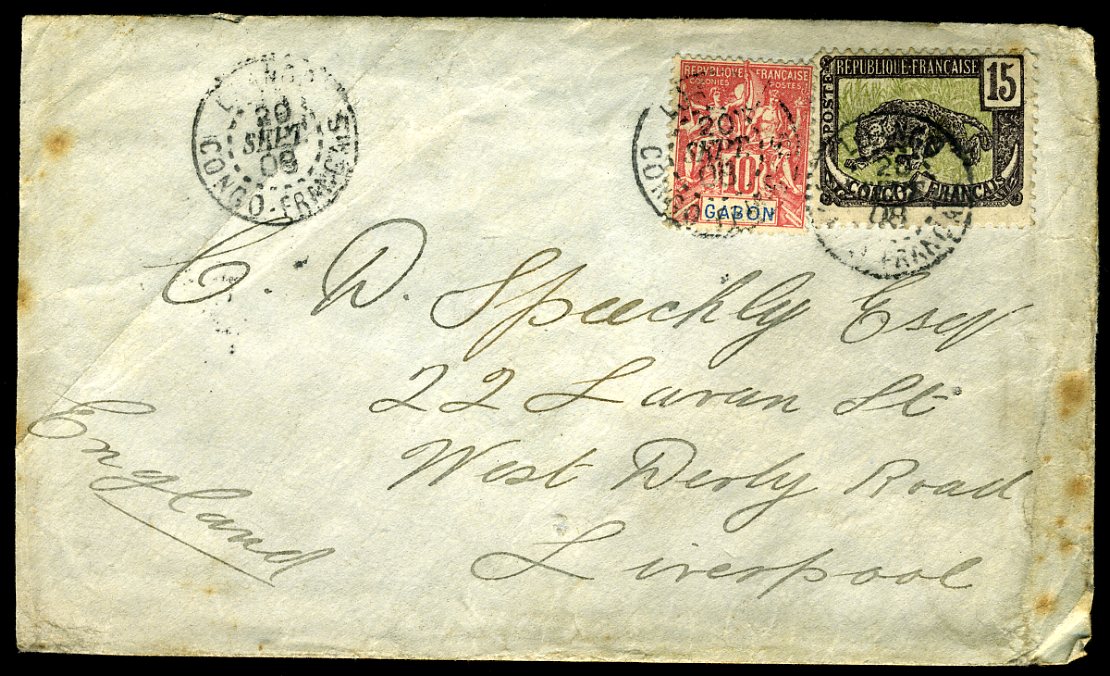 20
SEPT
08
CONGO-FRANÇAIS
REPUBLIQUE FRANÇAISE
COLONIES POSTES
20
SEPT
08
10
GABON
RÉPUBLIQUE-FRANÇAISE
15
POSTES
CONGO FRANÇAIS
08
C. D. Speechly Esqr
22 Lavan St
West Derby Road
Liverpool
England